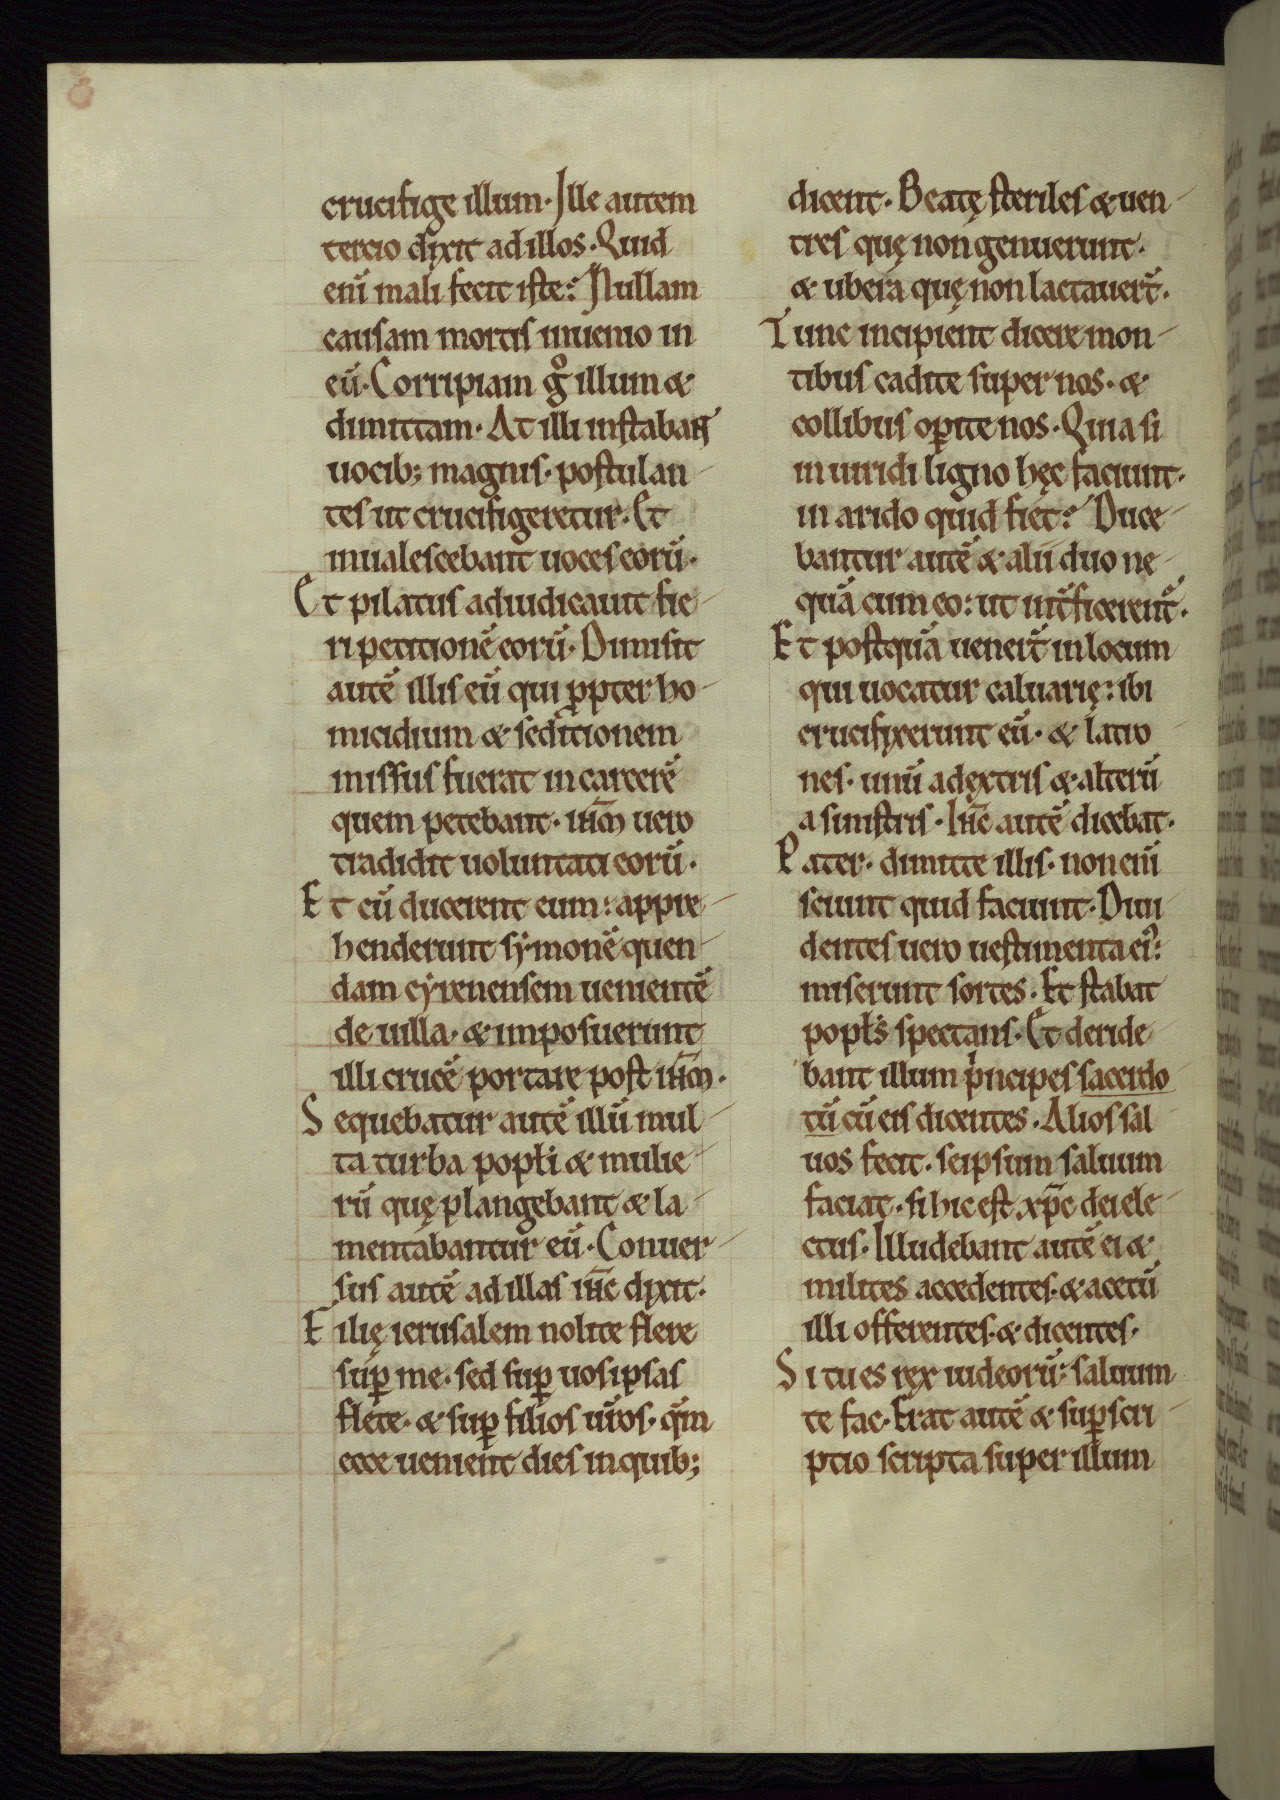 crucifige illum. Ille autem
tercio dixit ad illos. Quid
eni̅ mali fecit iste? Nullam
causam mortis inuenio in
eu̅. Corripiam gͦ illum &
dimittam. At illi instabant
uocib; magnis. postulan-
tes ut crucifigeretur. Et
inualescebant uoces eoru̅.
Et pilatus adiudicauit fie-
ri petitione̅ eoru̅. Dimisit
aute̅ illis eu̅ qui ꝓpter ho-
micidium & seditionem
missus fuerat in carcere̅
quem petebant. ih̅m uero
tradidit uoluntati eoru̅.
Et cu̅ ducerent eum: appre-
henderunt sẏmone̅ quen-
dam cẏrenensemueniente̅
de uilla. & imposuerunt
illi cruce̅ portare post ih̅m.
Sequebatur aute̅ illu̅ mul-
ta turba popłi & mulie-
ru̅ quę plangebant & la-
mentabantur eu̅. Conuer-
sus aute̅ ad illas ih̅c dixit.
Filię ierusalem nolite flere
suꝑ me. sed suꝑ uos ipsas
flete. & suꝑ filios ur̅os. qm̅
ecce uenient dies in quib;
dicent. Beatę steriles & uen-
tres quę non genuerunt.
& ubera quę non lactauer̅t.
Tunc incipient dicere mon-
tibus cadite super nos. &
collibus oꝑite nos. Quia si
in uiridi ligno hęc faciunt.
in arido quid fiet? Duce-
bantur aute̅ & alii duo ne-
qua̅ cum eo: ut int̅ficerent᷑.
Et postqua̅ uener̅t in locum
qui uocatur caluarię: ibi
crucifixerunt eu̅. & latro-
nes. unu̅ a dextris & alteru̅
a sinistris. Ih̅c aute̅ dicebat.
Pater. dimitte illis. non eni̅
sciunt quid faciunt. Diui-
dentes uero uestimenta ei᷒:
miserunt sortes. Et stabat
popłs spectans. Et deride-
bant illum pͥncipes sacerdo
tu̅ cu̅ eis dicentes. Alios sal-
uos fecit. seipsum saluum
faciat. si hic est xp̅c dei ele-
ctus. Illudebant aute̅ ei &
milites accedentes. & acetu̅
illi offerentes. & dicentes.
Si tu es rex iudeoru̅: saluum
te fac. Erat aute̅ & suꝑscri-
ptio scripta super illum